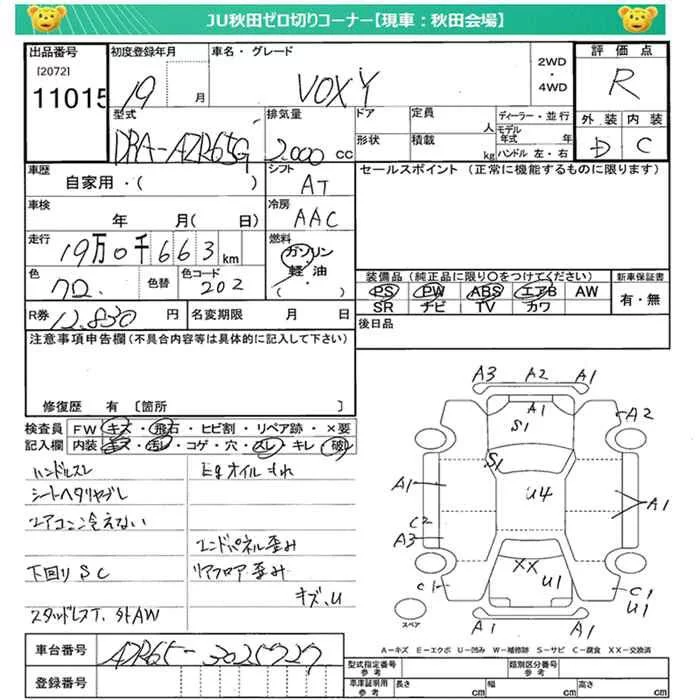 JU秋田ゼロ切りコーナー【現車：秋田会場】
出品番号
[2072]
11015
初度登録年月
19 月
車名・グレード
VOXY
2WD
・
4WD
評価点
R
外装 内装
D C
型式
DRA-AZR65G
排気量
2.000 cc
ドア
形状
定員
人
積載
kg
ディーラー・並行
モデル年式 年
ハンドル 左・右
車歴
自家用・( )
シフト
AT
セールスポイント (正常に機能するものに限ります)
車検
年 月( 日)
冷房
AAC
走行
19万0千663km
燃料
ガソリン
軽・油
色
クロ.
色替
色コード
202
装備品 (純正品に限り○をつけてください)
PS PW ABS エアB AW
SR ナビ TV カワ
新車保証書
有・無
R券 12.830 円
名変期限 月 日
後日品
注意事項申告欄 (不具合内容等は具体的に記入して下さい)
修復歴 有 〔箇所 〕
検査員
記入欄
FW キズ・飛石・ヒビ割・リペア跡・×要
内装 キズ・汚レ・コゲ・穴・スレ・キレ・破レ
ハンドルスレ
Egオイルもれ
シートヘタリヤブレ
エアコン冷えない
エンドパネル歪み
下回りSC
リアフロア歪み
キズ、U
スタッドレスT、外AW
A3 A2 A1
A1
S1
A2
S1
A1
U4
A1
C2
A3
XX
U1
C1
C1
U1
A1 A1
スペア
A－キズ E－エクボ U－凹み W－補修跡 S－サビ C－腐食 XX－交換済
車台番号
AZR65-3025727
登録番号
型式指定番号
参考
類別区分番号
参考
車庫証明用
参考
長さ cm
幅 cm
高さ cm